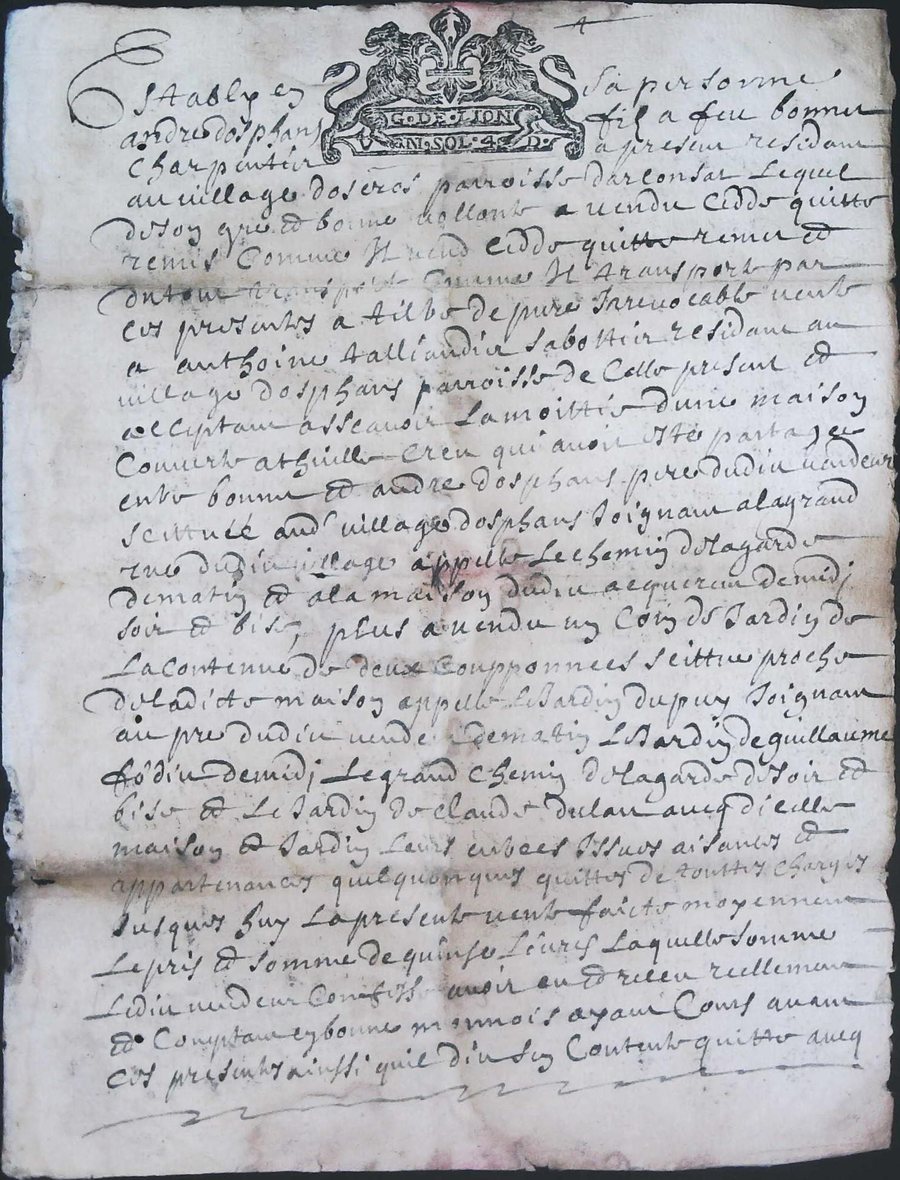 G · DE · LION
VN · SOL · 4 · D ·
Establÿ en sa personne
andre dosphans fil a feu bonnet
Charpentier a present residant
au village doseros parroisse darconsat Lequel
de son gre et bonne vollonte a vendu cedde quitte
remis Comme Il vend cedde quitte remet et
du tout transporte Comme Il transporte par
ces presentes a tiltre de pure Jrrevocable vente
a anthoine talliandier sabottier residant au
village dosphans parroisse de Celle present et
acceptant assçavoir La moittie dune maison
Couverte a thuille Creu qui avoit este partagee
entre bonnet et andre dosphans pere dudit vendeur
scittuée aud village dosphans Joignant a la grand
rue dudit village appelle Le chemin de lagarde
de matin et a la maison dudit acquereur de midj
soir et bise, plus a vendu un Coin de Jardin de
La Contenue de deux Coupponnees scittue proche
de laditte maison appelle Le Jardin du puy Joignant
au pre dudit vende de matin Le Jardin de guillaume
fodit de midj Le grand Chemin de lagarde de soir et
bise et Le Jardin de Claude dulac avecq dicelle
maison et Jardin Leurs entrees Issues aisances et
appartenances quelquonques quittes de touttes charges
Jusques huy La presente vente faicte moyennent
Le pris et somme de quinse Livres Laquelle somme
Ledit vendeur Confesse avoir eu et receu reellement
et Comptant en bonne monnoie ayant Cours avant
ces presentes ainssi quil dit sen Contente quitte avecq